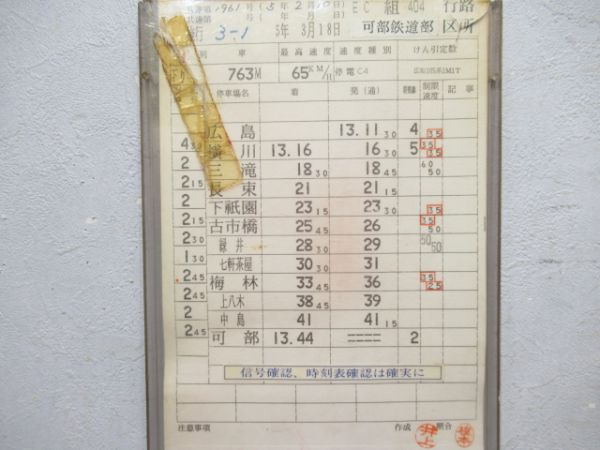 1961 (5年2月10日) EC 組 404 行路
(年 月 日)
行 3-1 5年3月18日 可部鉄道部 区所
列 車 最高速度 速度種別 けん引定数
763M 65KM/H 停電C4
停車場名 着 発(通) 制限速度 記事
広島 13.11 30 4 35
4 30 横川 13.16 16 30 5 35 35
2 三滝 18 30 18 45 60 50
2 15 長束 21 21 15
2 下祇園 23 15 23 30 35
2 15 古市橋 25 45 26 35 50
2 30 緑井 28 30 29 50 60
1 30 七軒茶屋 30 30 31
2 45 梅林 33 45 36 35 25
2 45 上八木 38 45 39
2 中島 41 41 15
2 45 可部 13.44 ==== 2
信号確認、時刻表確認は確実に
注意事項 作成 井上 照合